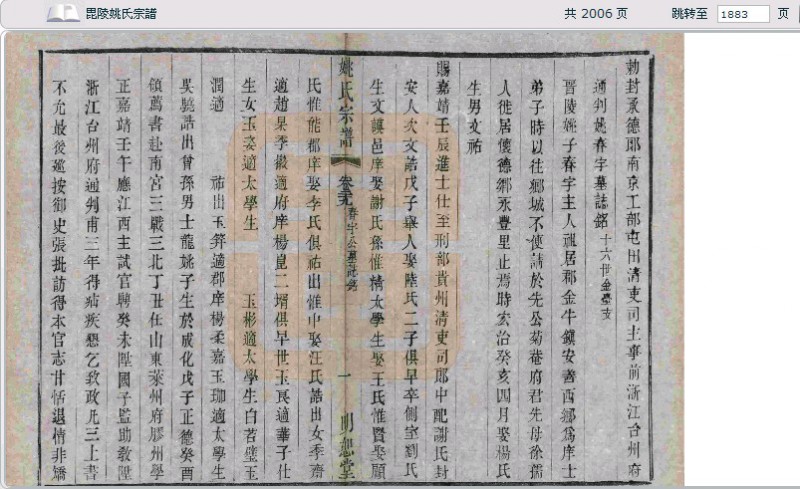 毘陵姚氏宗譜 共 2006 页 跳转至 1883 页
勅封承德郎南京工部屯田清吏司主事前浙江台州府
通判姚春宇墓誌銘 十六世金臺支
晉陵姚子春宇主人祖居郡金牛鎮安善西鄉爲庠士
弟子時以往鄉城不便請於先公菊菴府君先母徐孺
人徙居懷德鄉永豐里止焉時宏治癸亥四月娶楊氏
生男文祐
賜嘉靖壬辰進士仕至刑部貴州清吏司郎中配謝氏封
安人次文誥戊子舉人娶陸氏二子俱早卒側室劉氏
生文謨邑庠娶謝氏孫惟精太學生娶王氏惟賢娶顧
姚氏宗譜 卷 春宇公墓誌銘 一 明恕堂
氏惟能郡庠娶李氏俱祐出惟中娶汪氏誥出女季齋
適趙杲季徽適府庠楊崑二壻俱早世玉衷適華子仕
生女玉姿適太學生 玉彬適太學生白若璧玉
潤適 祐出玉筓適郡庠楊柔嘉玉珈適太學生
吳 誥出曾孫男士龍姚子生於成化戊子正德癸酉
領薦書赴南宮三戰三北丁丑仕山東萊州府膠州學
正嘉靖壬午應江西主試官聘癸未陞國子監助教陞
浙江台州府通判甫三年得疝疾懇乞致政凡三上書
不允最後巡按御史張批訪得本官志甘恬退情非矯